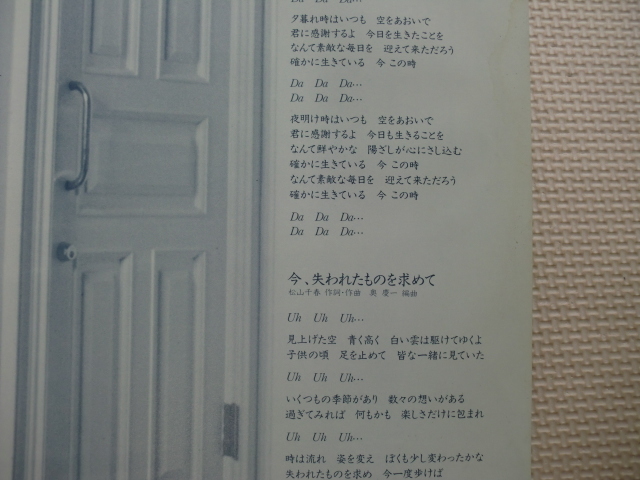 Da Da Da…
夕暮れ時はいつも 空をあおいで
君に感謝するよ 今日を生きたことを
なんて素敵な毎日を 迎えて来ただろう
確かに生きている 今 この時
Da Da Da…
Da Da Da…
夜明け時はいつも 空をあおいで
君に感謝するよ 今日も生きることを
なんて鮮やかな 陽ざしが心にさし込む
確かに生きている 今 この時
なんて素敵な毎日を 迎えて来ただろう
確かに生きている 今 この時
Da Da Da…
Da Da Da…
今、失われたものを求めて
松山千春 作詞・作曲 奥 慶一 編曲
Uh Uh Uh…
見上げた空 青く高く 白い雲は駆けてゆくよ
子供の頃 足を止めて 皆な一緒に見ていた
Uh Uh Uh…
いくつもの季節があり 数々の想いがある
過ぎてみれば 何もかも 楽しさだけに包まれ
Uh Uh Uh…
時は流れ 姿を変え ぼくも少し変わったかな
失われたものを求め 今一度歩けば